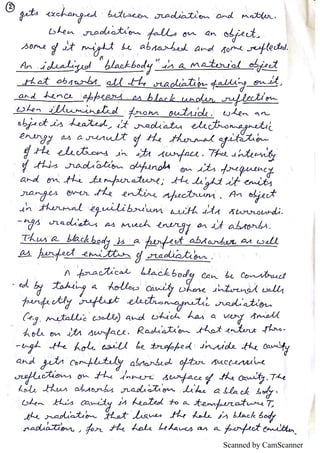 ②
gets exchanged between radiation and matter.
When radiation falls on an object,
some of it might be absorbed and some reflected.
An idealized "blackbody" is a material object
that absorbs all the radiation falling on it,
and hence appears as black under reflection
when illuminated from outside. When an
object is heated, it radiates electromagnetic
energy as a result of the thermal agitation
of the electrons in its surface. The intensity
of this radiation depends on its frequency
and on the temperature; the light it emits
ranges over the entire spectrum. An object
in thermal equilibrium with its surroundi-
-ngs radiates as much energy as it absorbs.
Thus a blackbody is a perfect absorber as well
as perfect emitter of radiation.
A practical blackbody can be construct
-ed by taking a hollow cavity whose internal walls
perfectly reflect electromagnetic radiation
(e.g. metallic walls) and which has a very small
hole on its surface. Radiation that enters thro-
-ugh the hole will be trapped inside the cavity
and gets completely absorbed after successive
reflections on the inner surface of the cavity. The
hole thus absorbs radiation like a black body.
When this cavity is heated to a temperature T,
the radiation that leaves the hole is black body
radiation, for the hole behaves as a perfect emitter.
Scanned by CamScanner